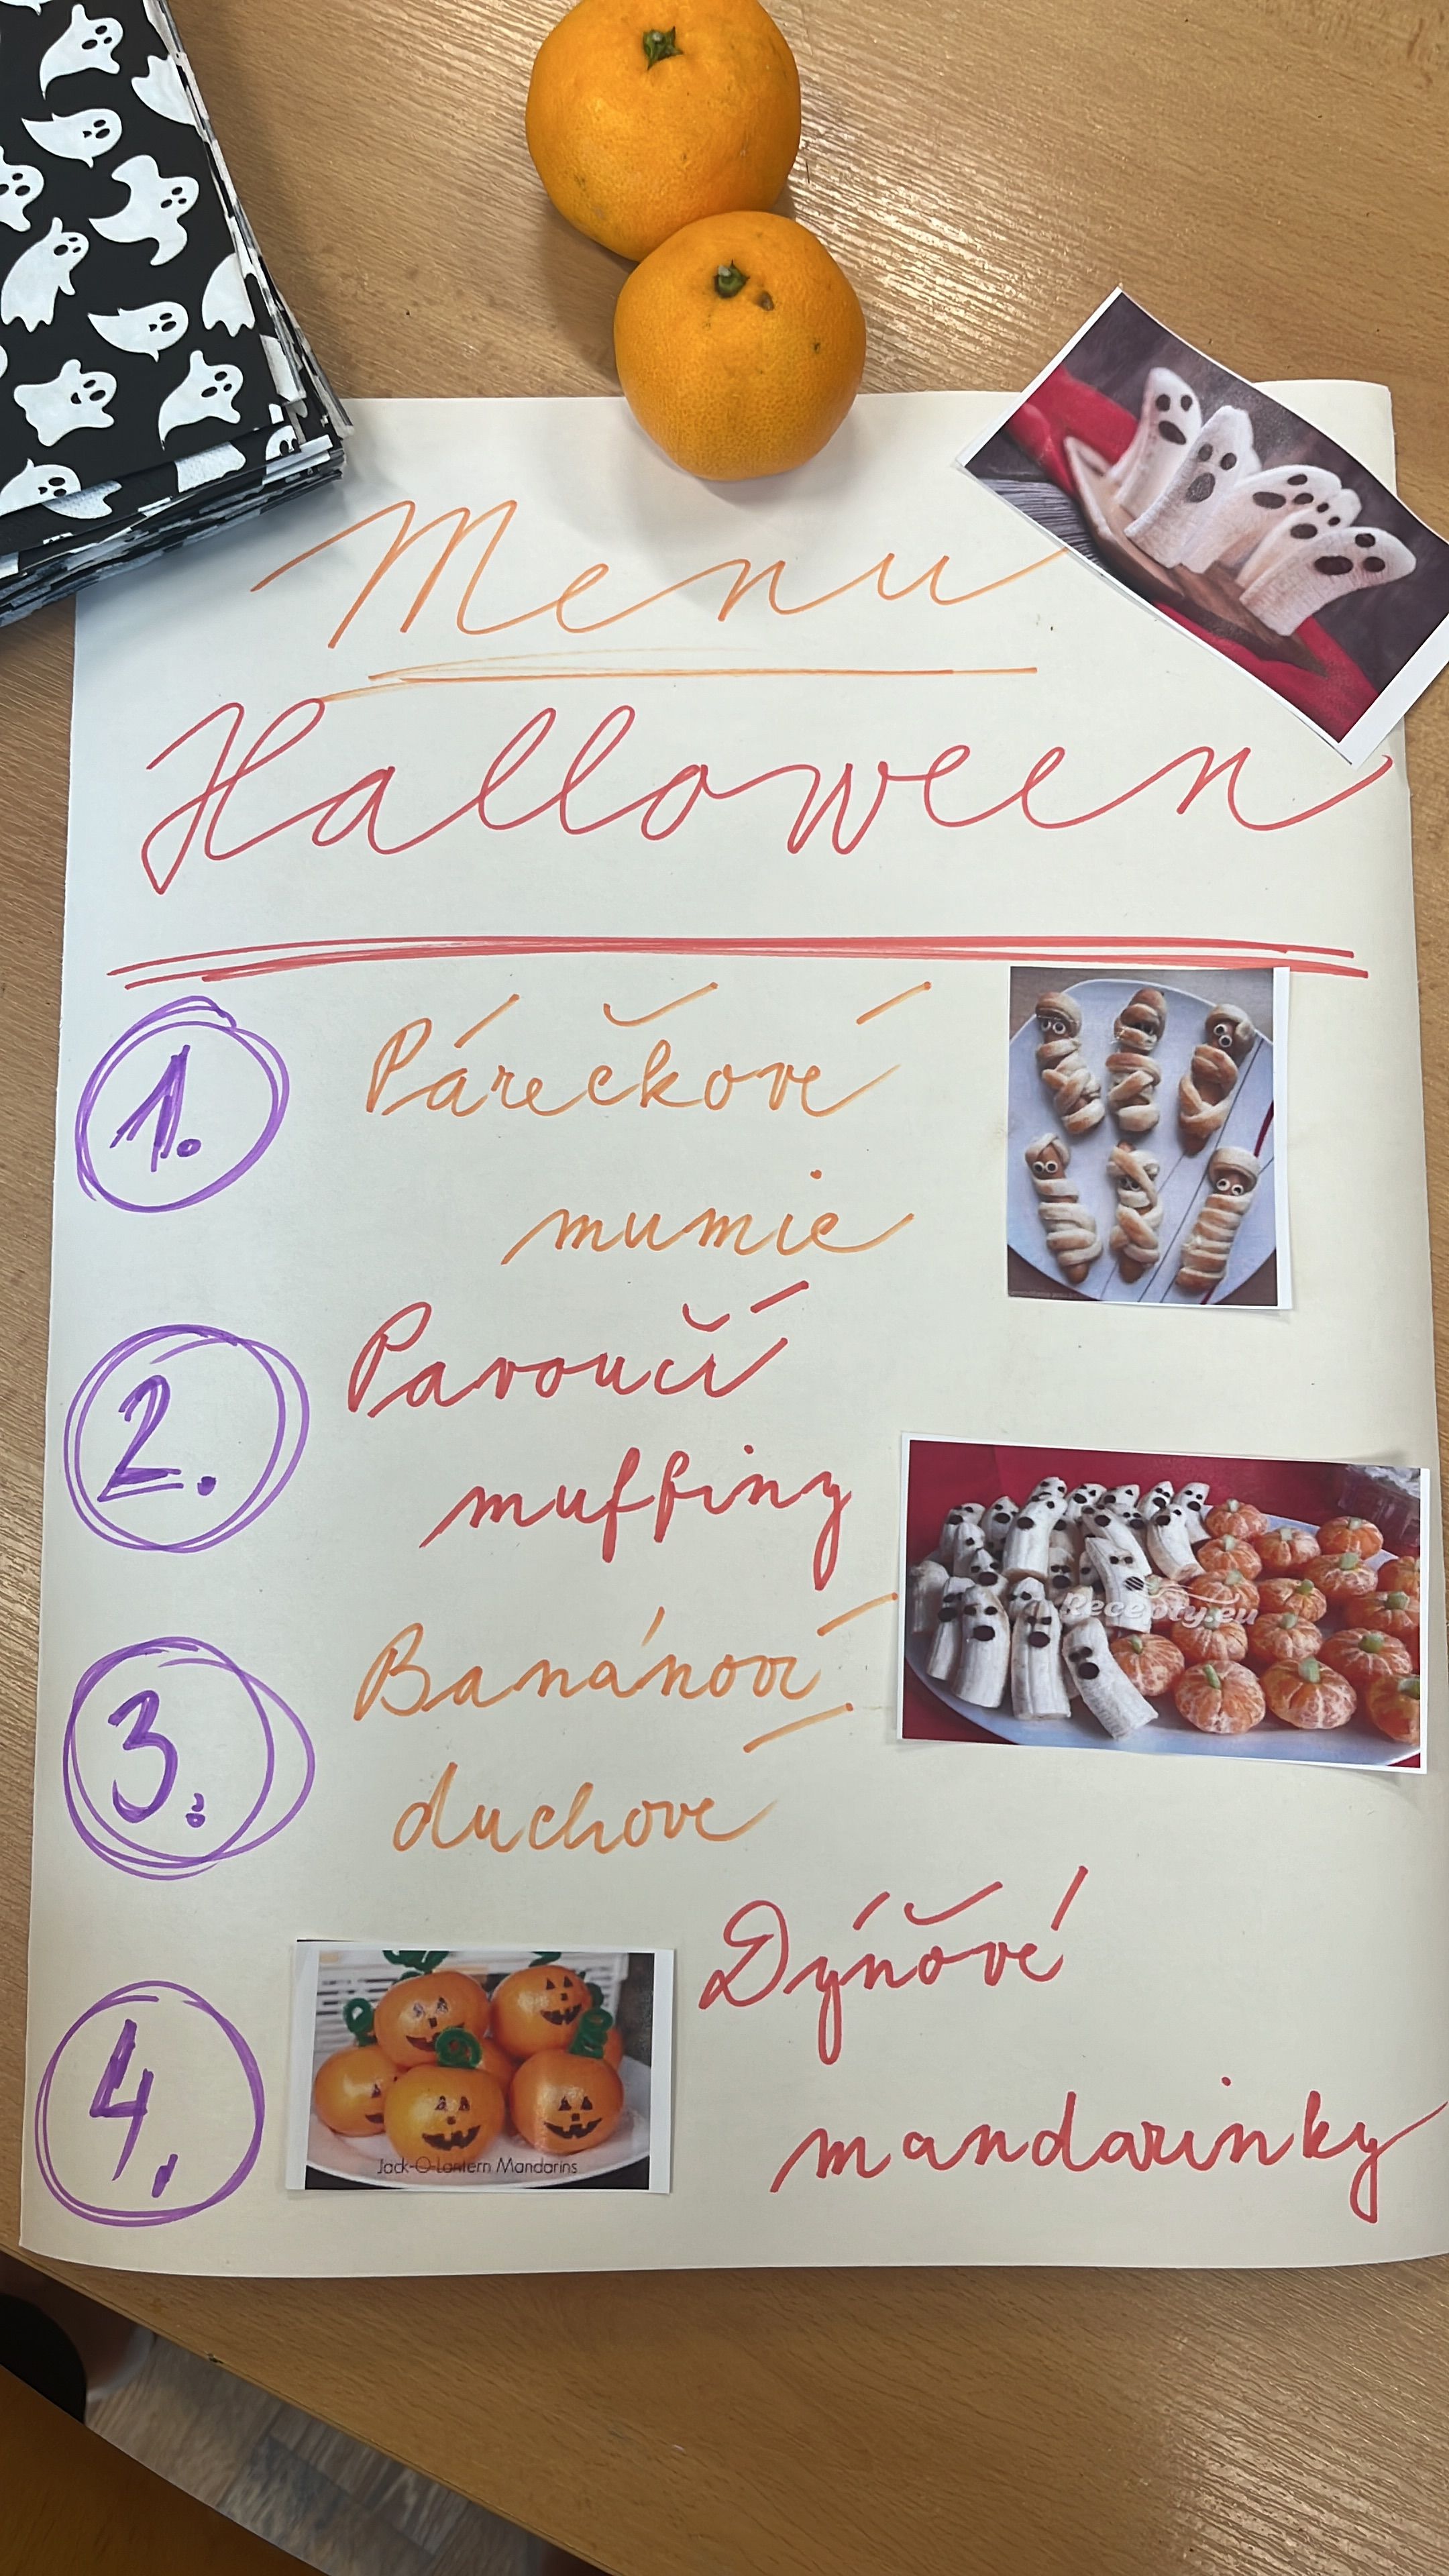 Menu
Halloween
1. Párečkové
mumie
2. Pavoučí
muffiny
Recepty.eu
3. Banánoví
duchové
4. Dýňové
mandarinky
Jack-O-Lantern Mandarins